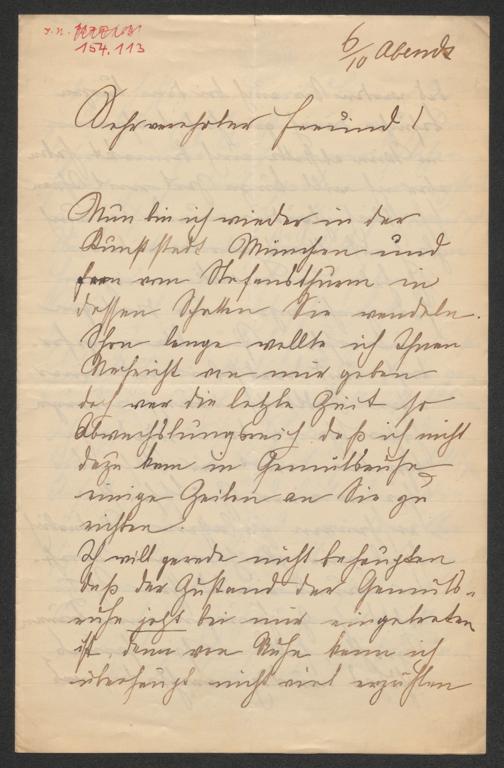 154.113
6/10 Abends
Sehr verehrter Freund!
Nun bin ich wieder in der
Kunststadt München und
fern vom Stefansthurm in
dessen Schatten Sie wandeln.
Schon lange wollte ich Ihnen
Nachricht von mir geben
doch war die letzte Zeit so
Abwechslungsreich daß ich nicht
dazu kam in Gemütsruhe
einige Zeilen an Sie zu
richten.
Ich will gerade nicht behaupten
daß der Zustand der Gemüts-
ruhe jetzt bei mir eingetreten
ist, denn von Ruhe kann ich
überhaupt nicht viel erzählen